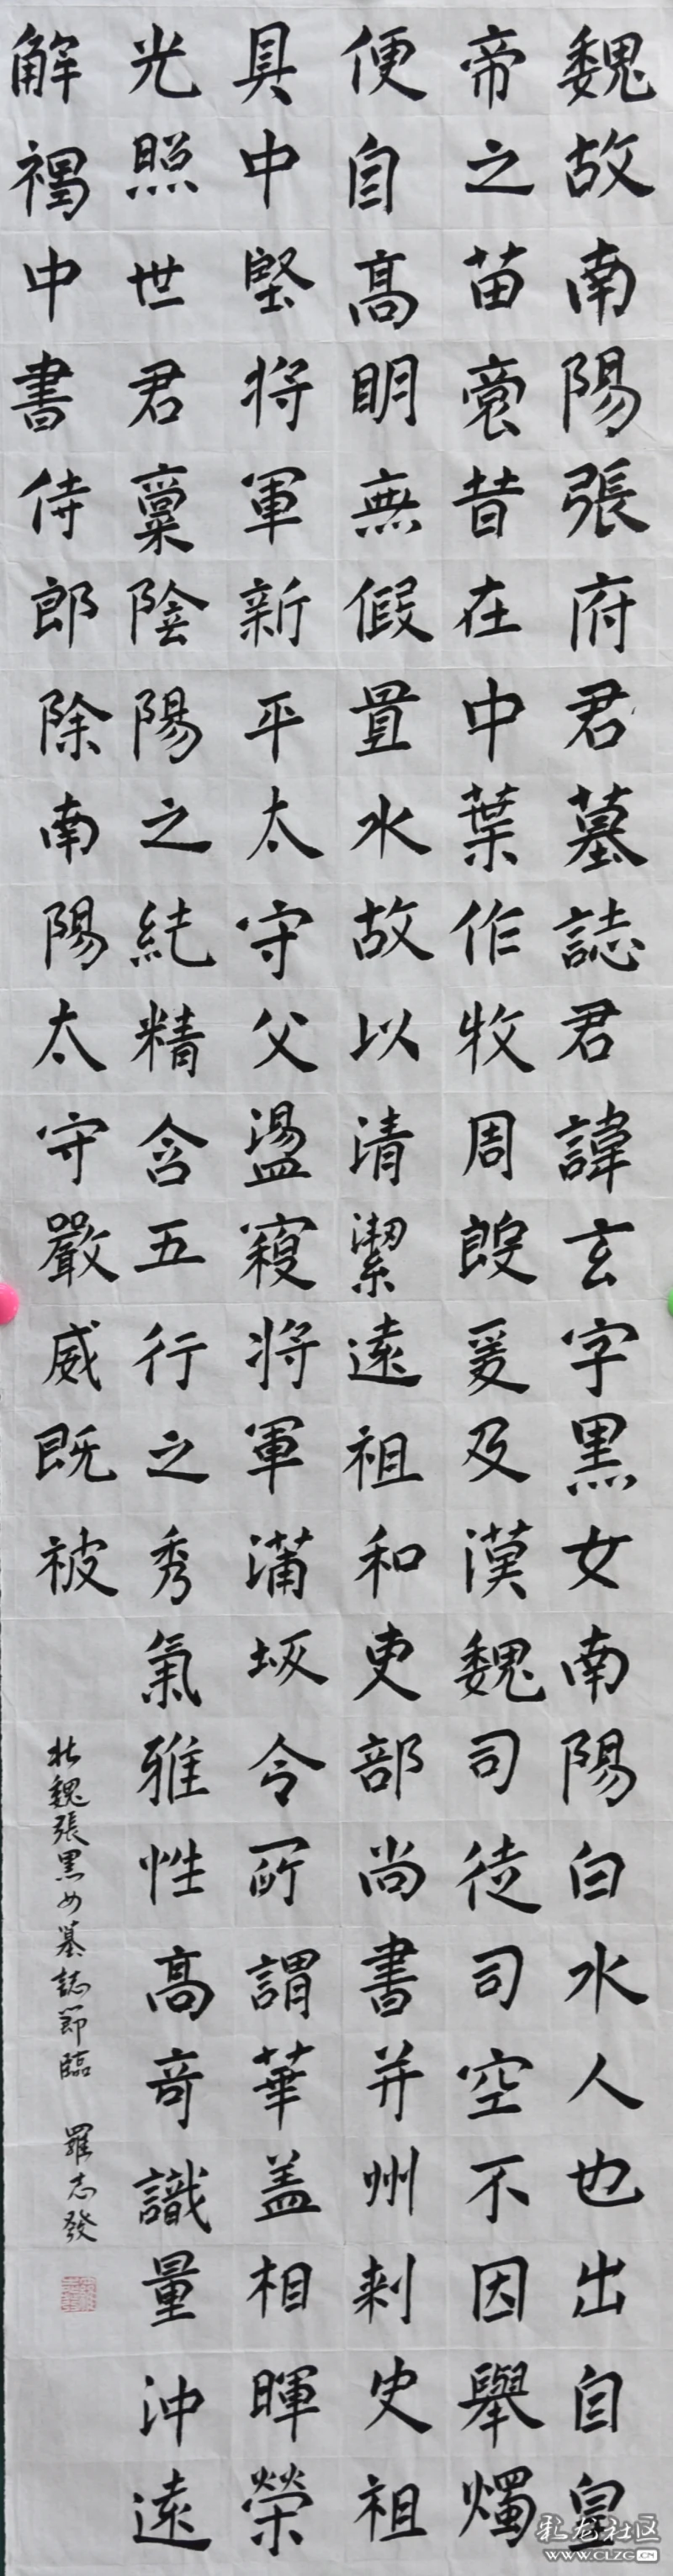 魏故南陽張府君墓誌君諱玄字黑女南陽白水人也出自皇
帝之苗裔昔在中葉作牧周殷爰及漢魏司徒司空不因舉燭
便自高明無假置水故以清潔遠祖和吏部尚書并州刺史祖
具中堅將軍新平太守父盪寇將軍蒲坂令所謂華蓋相暉榮
光照世君稟陰陽之純精含五行之秀氣雅性高奇識量沖遠
解褐中書侍郎除南陽太守嚴威既被
北魏張黑女墓誌節臨 羅志發
彩龙社区
WWW.CLZG.CN